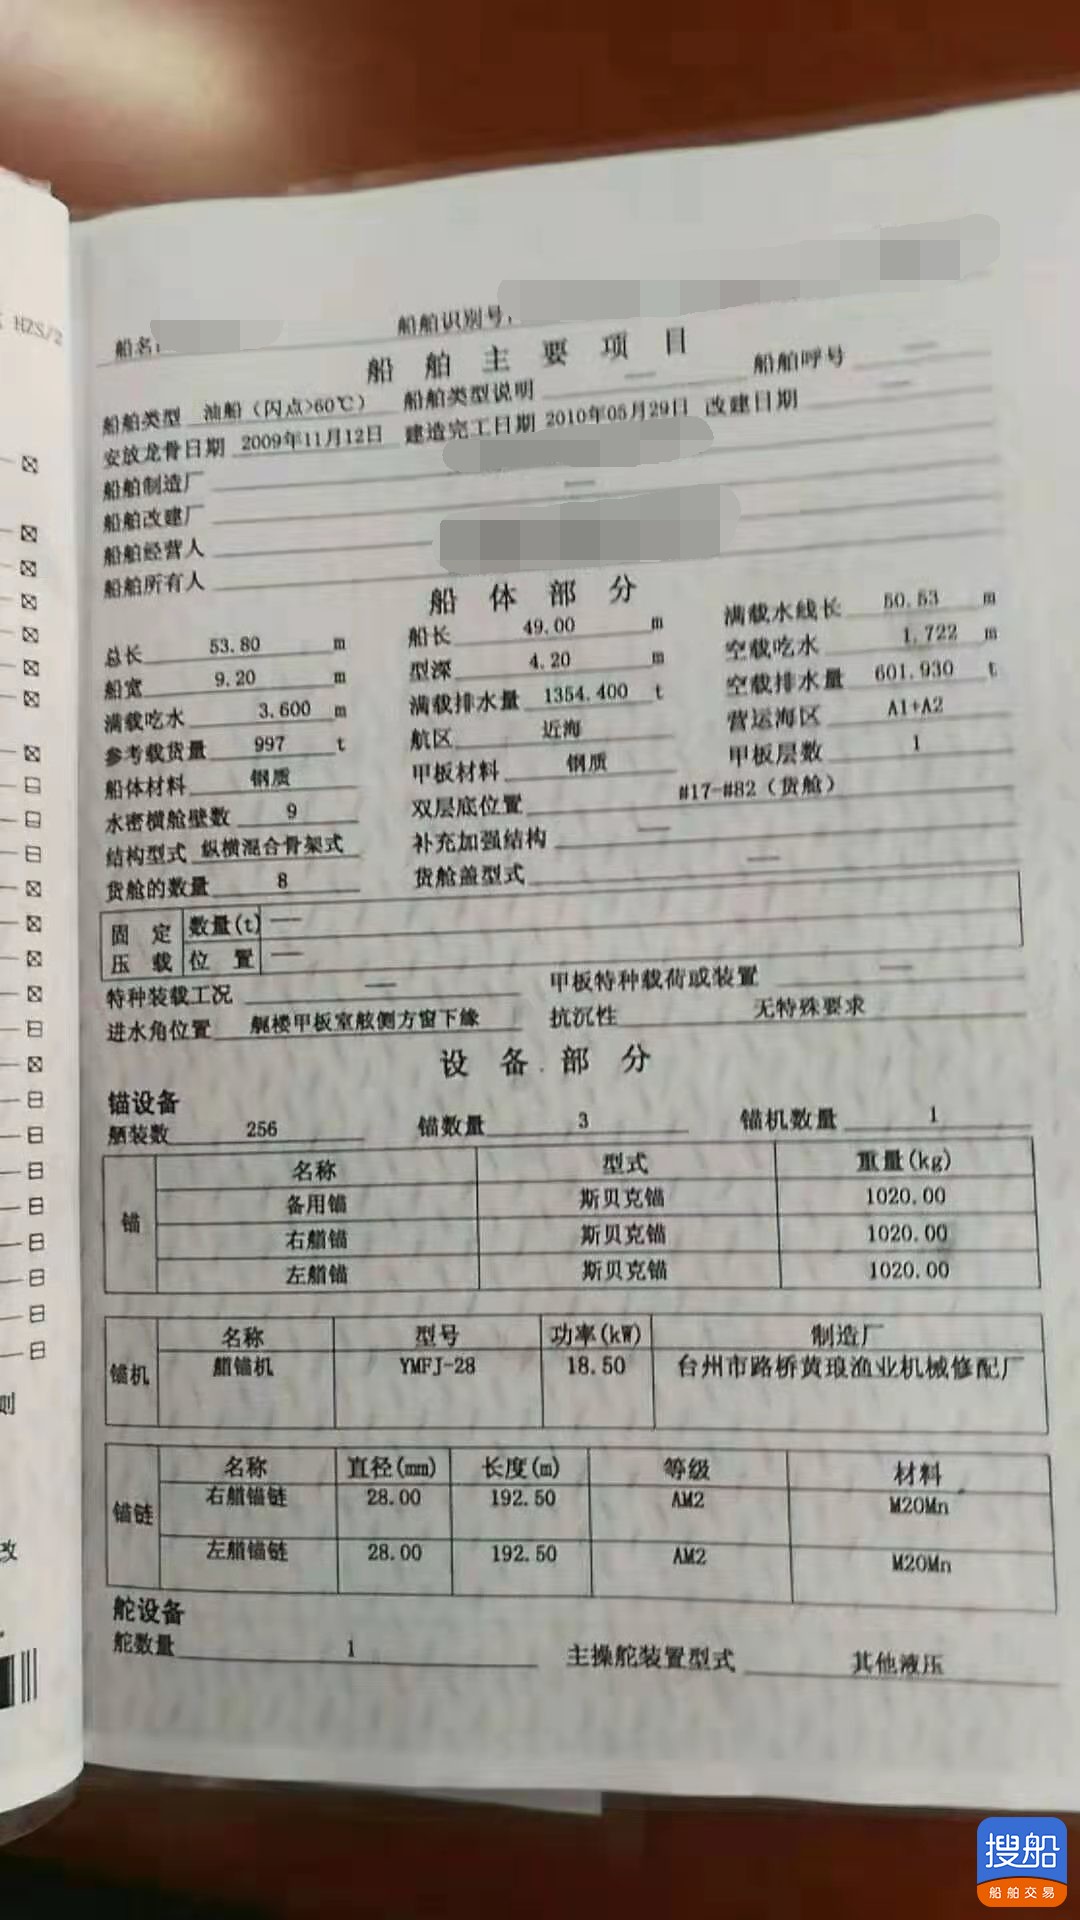 HZS/2
船名:
船舶识别号:
船舶主要项目
船舶类型 油船（闪点>60℃） 船舶类型说明 — 船舶呼号 —
安放龙骨日期 2009年11月12日 建造完工日期 2010年05月29日 改建日期 —
船舶制造厂
船舶改建厂 —
船舶经营人
船舶所有人
船体部分
总长 53.80 m 船长 49.00 m 满载水线长 50.53 m
船宽 9.20 m 型深 4.20 m 空载吃水 1.722 m
满载吃水 3.600 m 满载排水量 1354.400 t 空载排水量 601.930 t
参考载货量 997 t 航区 近海 营运海区 A1+A2
船体材料 钢质 甲板材料 钢质 甲板层数 1
水密横舱壁数 9 双层底位置 #17-#82（货舱）
结构型式 纵横混合骨架式 补充加强结构 —
货舱的数量 8 货舱盖型式 —
固定压载 数量(t) —
位置 —
特种装载工况 — 甲板特种载荷或装置 —
进水角位置 艉楼甲板室舷侧方窗下缘 抗沉性 无特殊要求
设备部分
锚设备
舾装数 256 锚数量 3 锚机数量 1
锚 名称 型式 重量(kg)
备用锚 斯贝克锚 1020.00
右艏锚 斯贝克锚 1020.00
左艏锚 斯贝克锚 1020.00
锚机 名称 型号 功率(kW) 制造厂
艏锚机 YMFJ-28 18.50 台州市路桥黄琅渔业机械修配厂
锚链 名称 直径(mm) 长度(m) 等级 材料
右艏锚链 28.00 192.50 AM2 M20Mn
左艏锚链 28.00 192.50 AM2 M20Mn
舵设备
舵数量 1 主操舵装置型式 其他液压
则
改
搜船
船舶交易